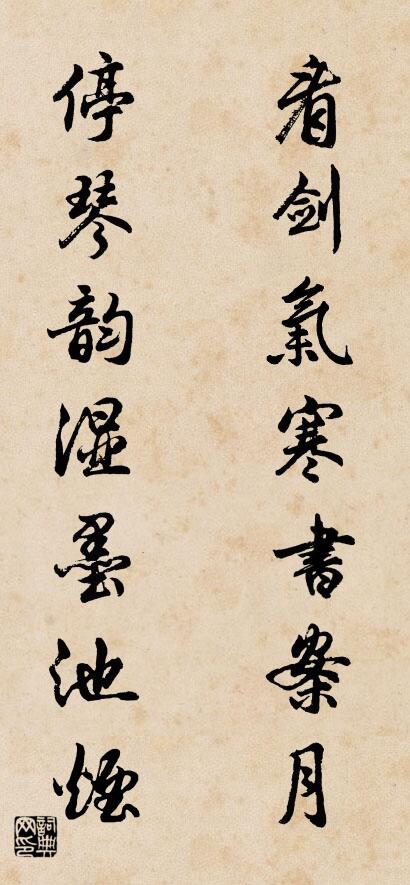 看剑氣寒書案月
停琴韵濕墨池煙
詞典网印